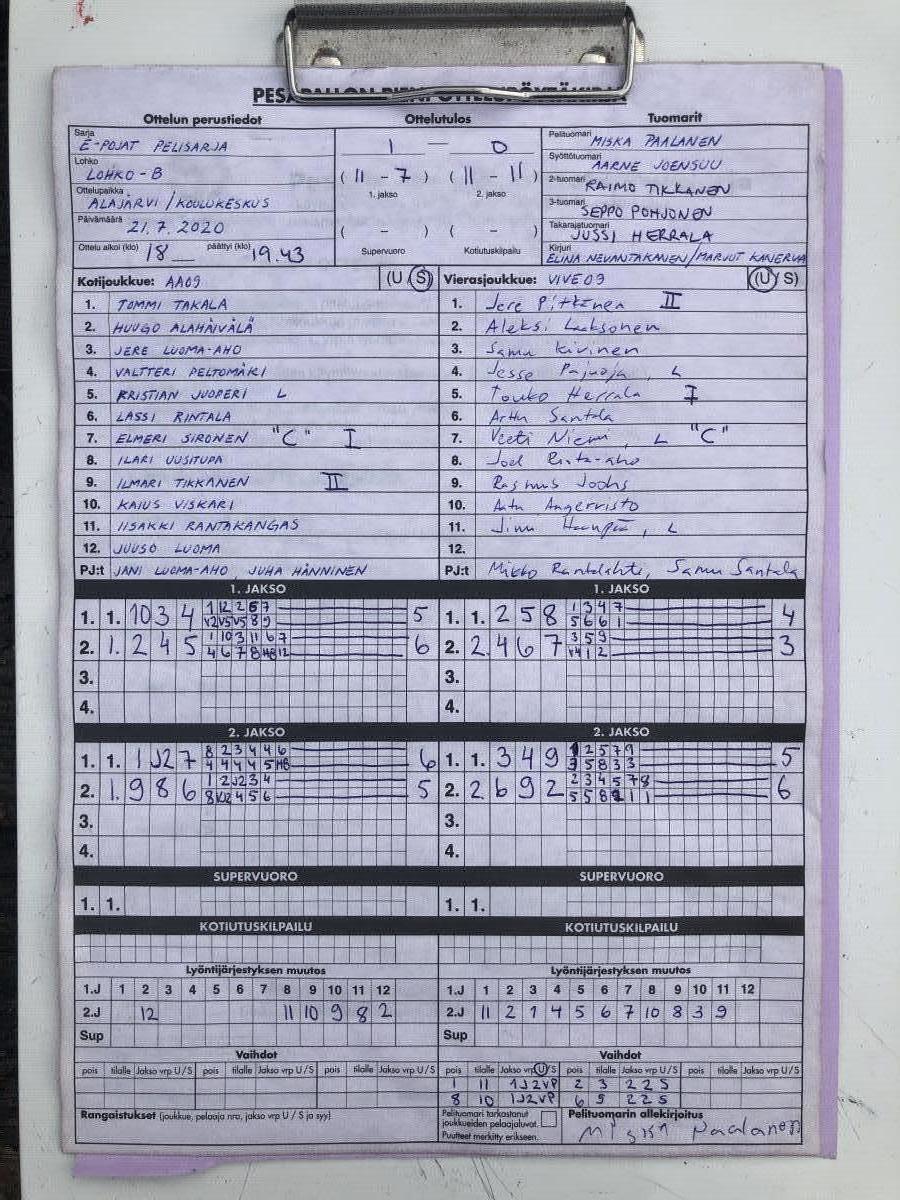 Ottelun perustiedot Ottelutulos Tuomarit
Sarja E-POJAT PELISARJA
Lohko LOHKO-B
Ottelupaikka ALAJÄRVI/KOULUKESKUS
Päivämäärä 21.7.2020
Ottelu alkoi (klo) 18 päättyi (klo) 19.43
1 — 0
(11 - 7) (11 - 11)
1. jakso 2. jakso
( - ) ( - )
Supervuoro Kotiutuskilpailu
Pelituomari MISKA PAALANEN
Syöttötuomari AARNE JOENSUU
2-tuomari RAIMO TIKKANEN
3-tuomari SEPPO POHJONEN
Takarajatuomari JUSSI HERRALA
Kirjuri ELINA NEVANTAKANEN/MARJUT KANERVA
Kotijoukkue: AA09 (U S)
1. TOMMI TAKALA
2. HUUGO ALAHÄIVÄLÄ
3. JERE LUOMA-AHO
4. VALTTERI PELTOMÄKI
5. KRISTIAN JUOPERI L
6. LASSI RINTALA
7. ELMERI SIRONEN "C" I
8. ILARI UUSITUPA
9. ILMARI TIKKANEN II
10. KAIUS VISKARI
11. IISAKKI RANTAKANGAS
12. JUUSO LUOMA
PJ:t JANI LUOMA-AHO, JUHA HÄNNINEN
Vierasjoukkue: VIVE09 (U S)
1. Jere Pitkänen II
2. Aleksi Laaksonen
3. Samu Kivinen
4. Jesse Pajuoja, L
5. Touko Herrala I
6. Arttu Santala
7. Veeti Niemi, L "C"
8. Joel Rinta-aho
9. Rasmus
10. Angervisto
11. L
12.
PJ:t Mikko Rantalahti, Samu Santala
1. JAKSO 1. JAKSO
1. 1. 10 3 4 5
2. 1. 2 4 5 6
3.
4.
1. 1. 2 5 8 4
2. 2. 4 6 7 3
3.
4.
2. JAKSO 2. JAKSO
1. 1. 1 J2 7 6
2. 1. 9 8 6 5
3.
4.
1. 1. 3 4 9 5
2. 2 6 9 2 6
3.
4.
SUPERVUORO SUPERVUORO
1. 1. 1. 1.
KOTIUTUSKILPAILU KOTIUTUSKILPAILU
Lyöntijärjestyksen muutos
1.J 1 2 3 4 5 6 7 8 9 10 11 12
2.J 12 11 10 9 8 2
Sup
Lyöntijärjestyksen muutos
1.J 1 2 3 4 5 6 7 8 9 10 11 12
2.J 11 2 1 4 5 6 7 10 8 3 9
Vaihdot Vaihdot
pois tilalle Jakso vrp U/S pois tilalle Jakso vrp U/S pois tilalle Jakso vrp U/S
pois tilalle Jakso vrp U/S pois tilalle Jakso vrp U/S pois tilalle Jakso vrp U/S
1 11 1J2VP 2 3 2 2 S
8 10 1J2VP 6 5 2 2 S
Rangaistukset (joukkue, pelaaja nro, jakso vrp U / S ja syy)
Pelituomari tarkastanut
joukkueiden pelaajaluvat.
Puutteet merkitty erikseen.
Pelituomarin allekirjoitus
Miska Paalanen